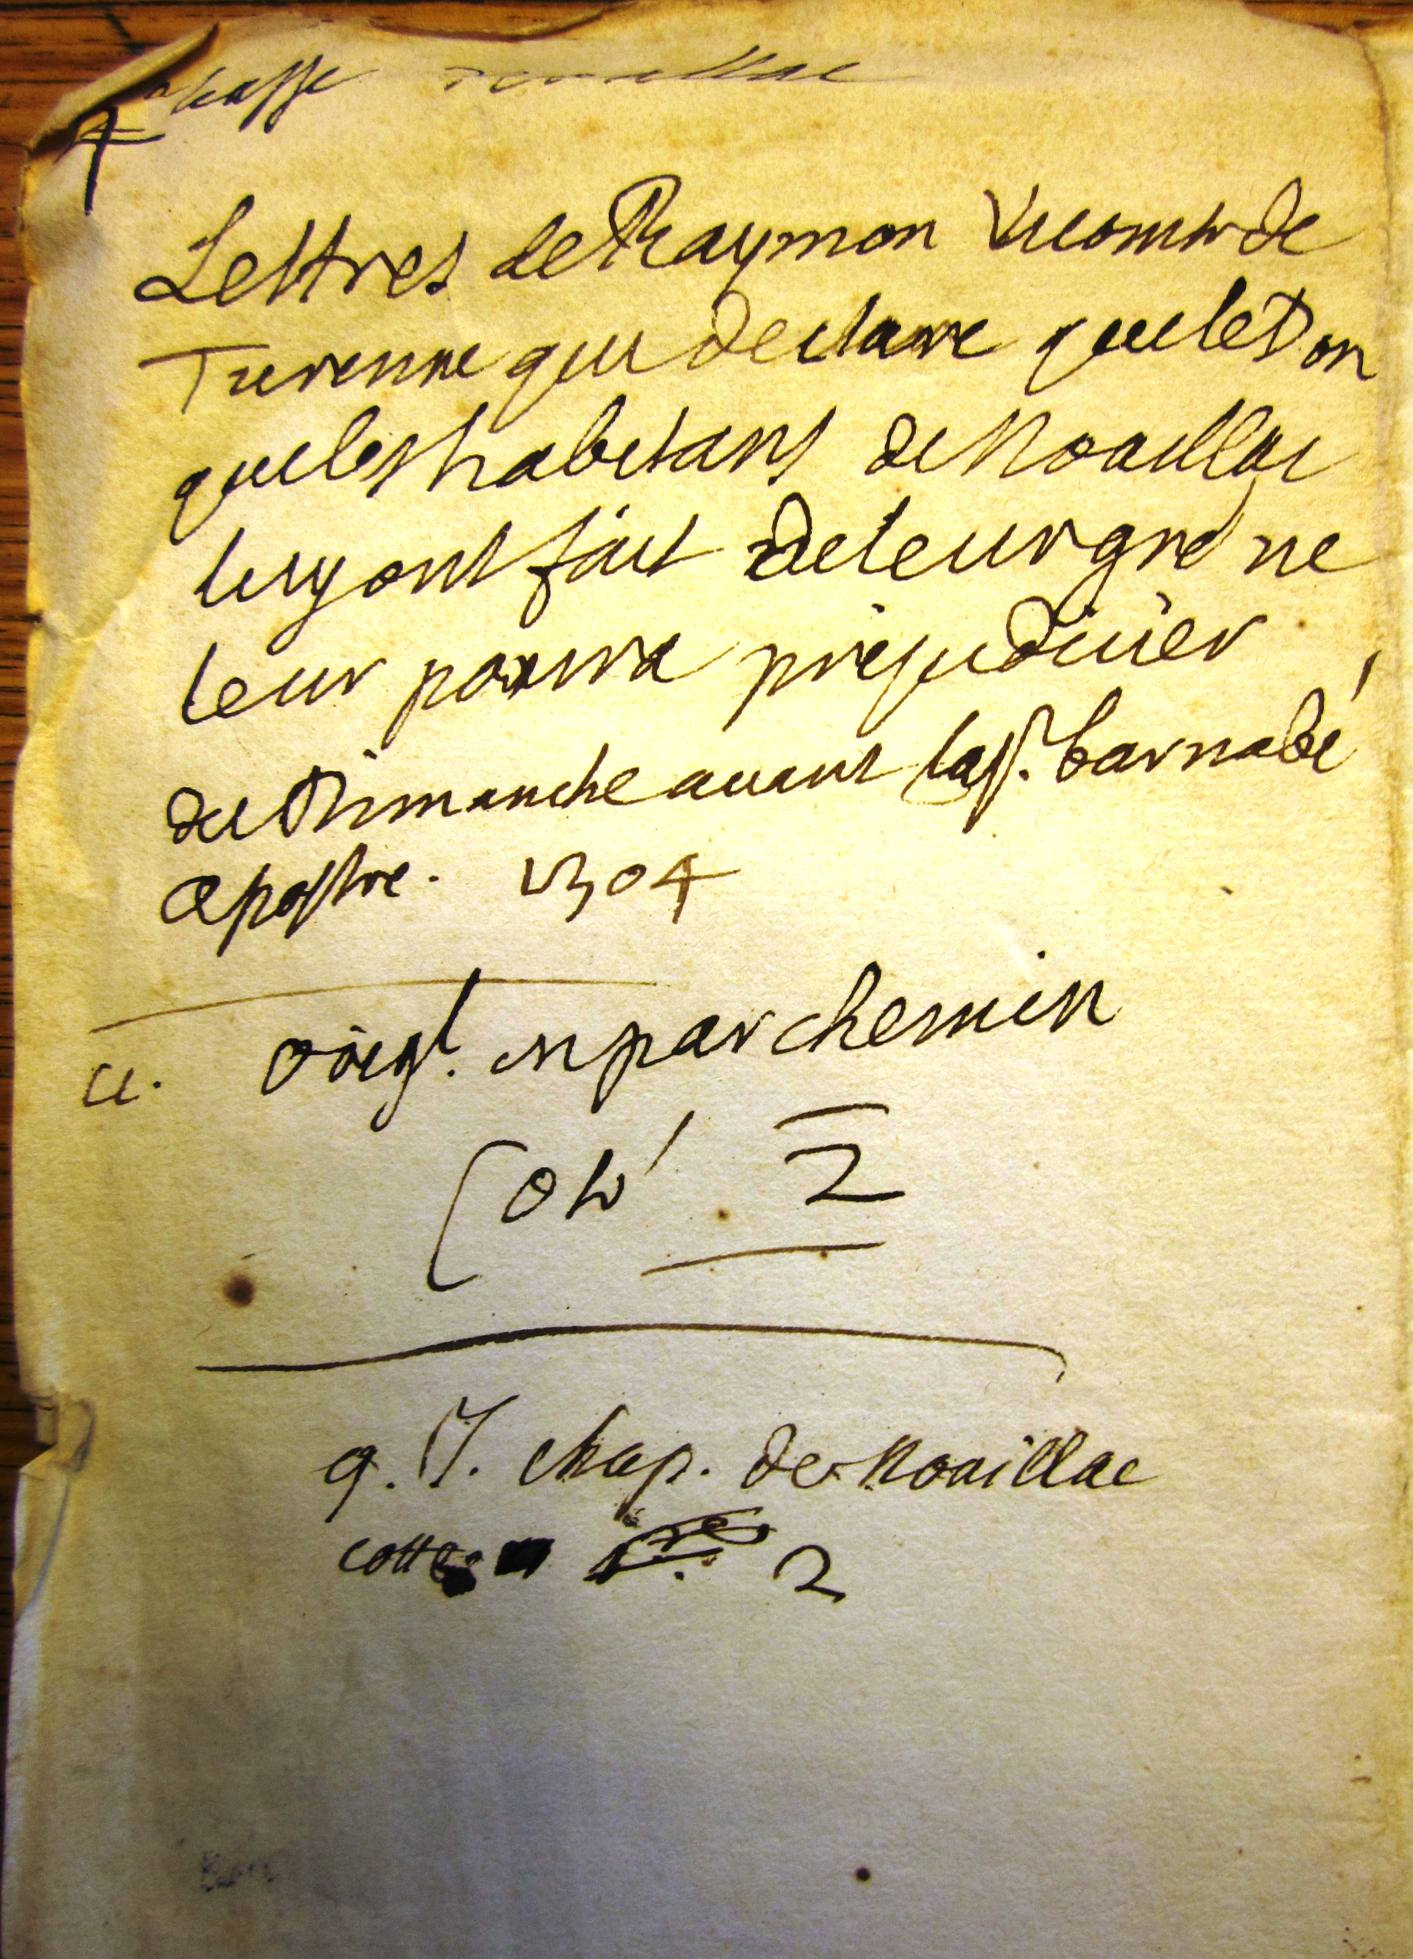 liasse
4
Lettres de Raymon Vicomte de
Turenne qui declare que le Don
que les habitans de Noaillac
luy ont fait de leur gré ne
leur pourra prejudicier
du Dimanche avant la s.t barnabé
apostre. 1304
orig.l en parchemin
Coté 2
g. J. chap. de Noaillac
cotte 2